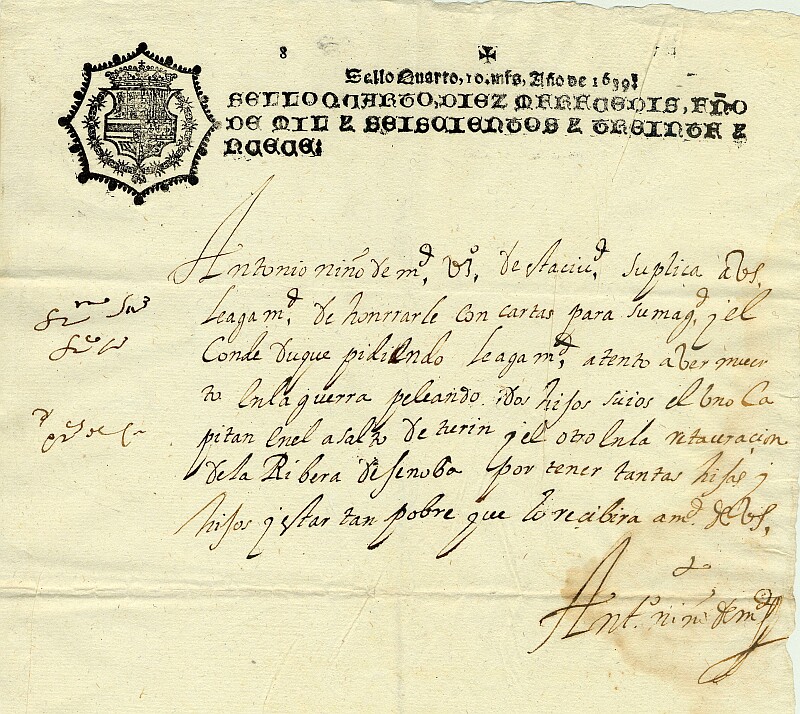 8
Sello Quarto, 10. mrs, Año de 1639.
SELLO QVARTO, DIEZ MARAVEDIS, AÑO
DE MIL Y SEISCIENTOS Y TREINTA Y
NVEVE.
Antonio niño de md, Vo, de staciud, suplica a Vs,
leaga md, de honrrarle con cartas para su magd, j el
Conde duque pidiendo leaga md, atento a ver muer
to En la guerra peleando. Dos hijos suios el Vno Ca
pitan En el asalto de turin j el otro En la retauracion
de la Ribera de senoba por tener tantas hijas j
hijos j estar tan pobre que lo recibira a md. de Vs,
Anto. niño de md